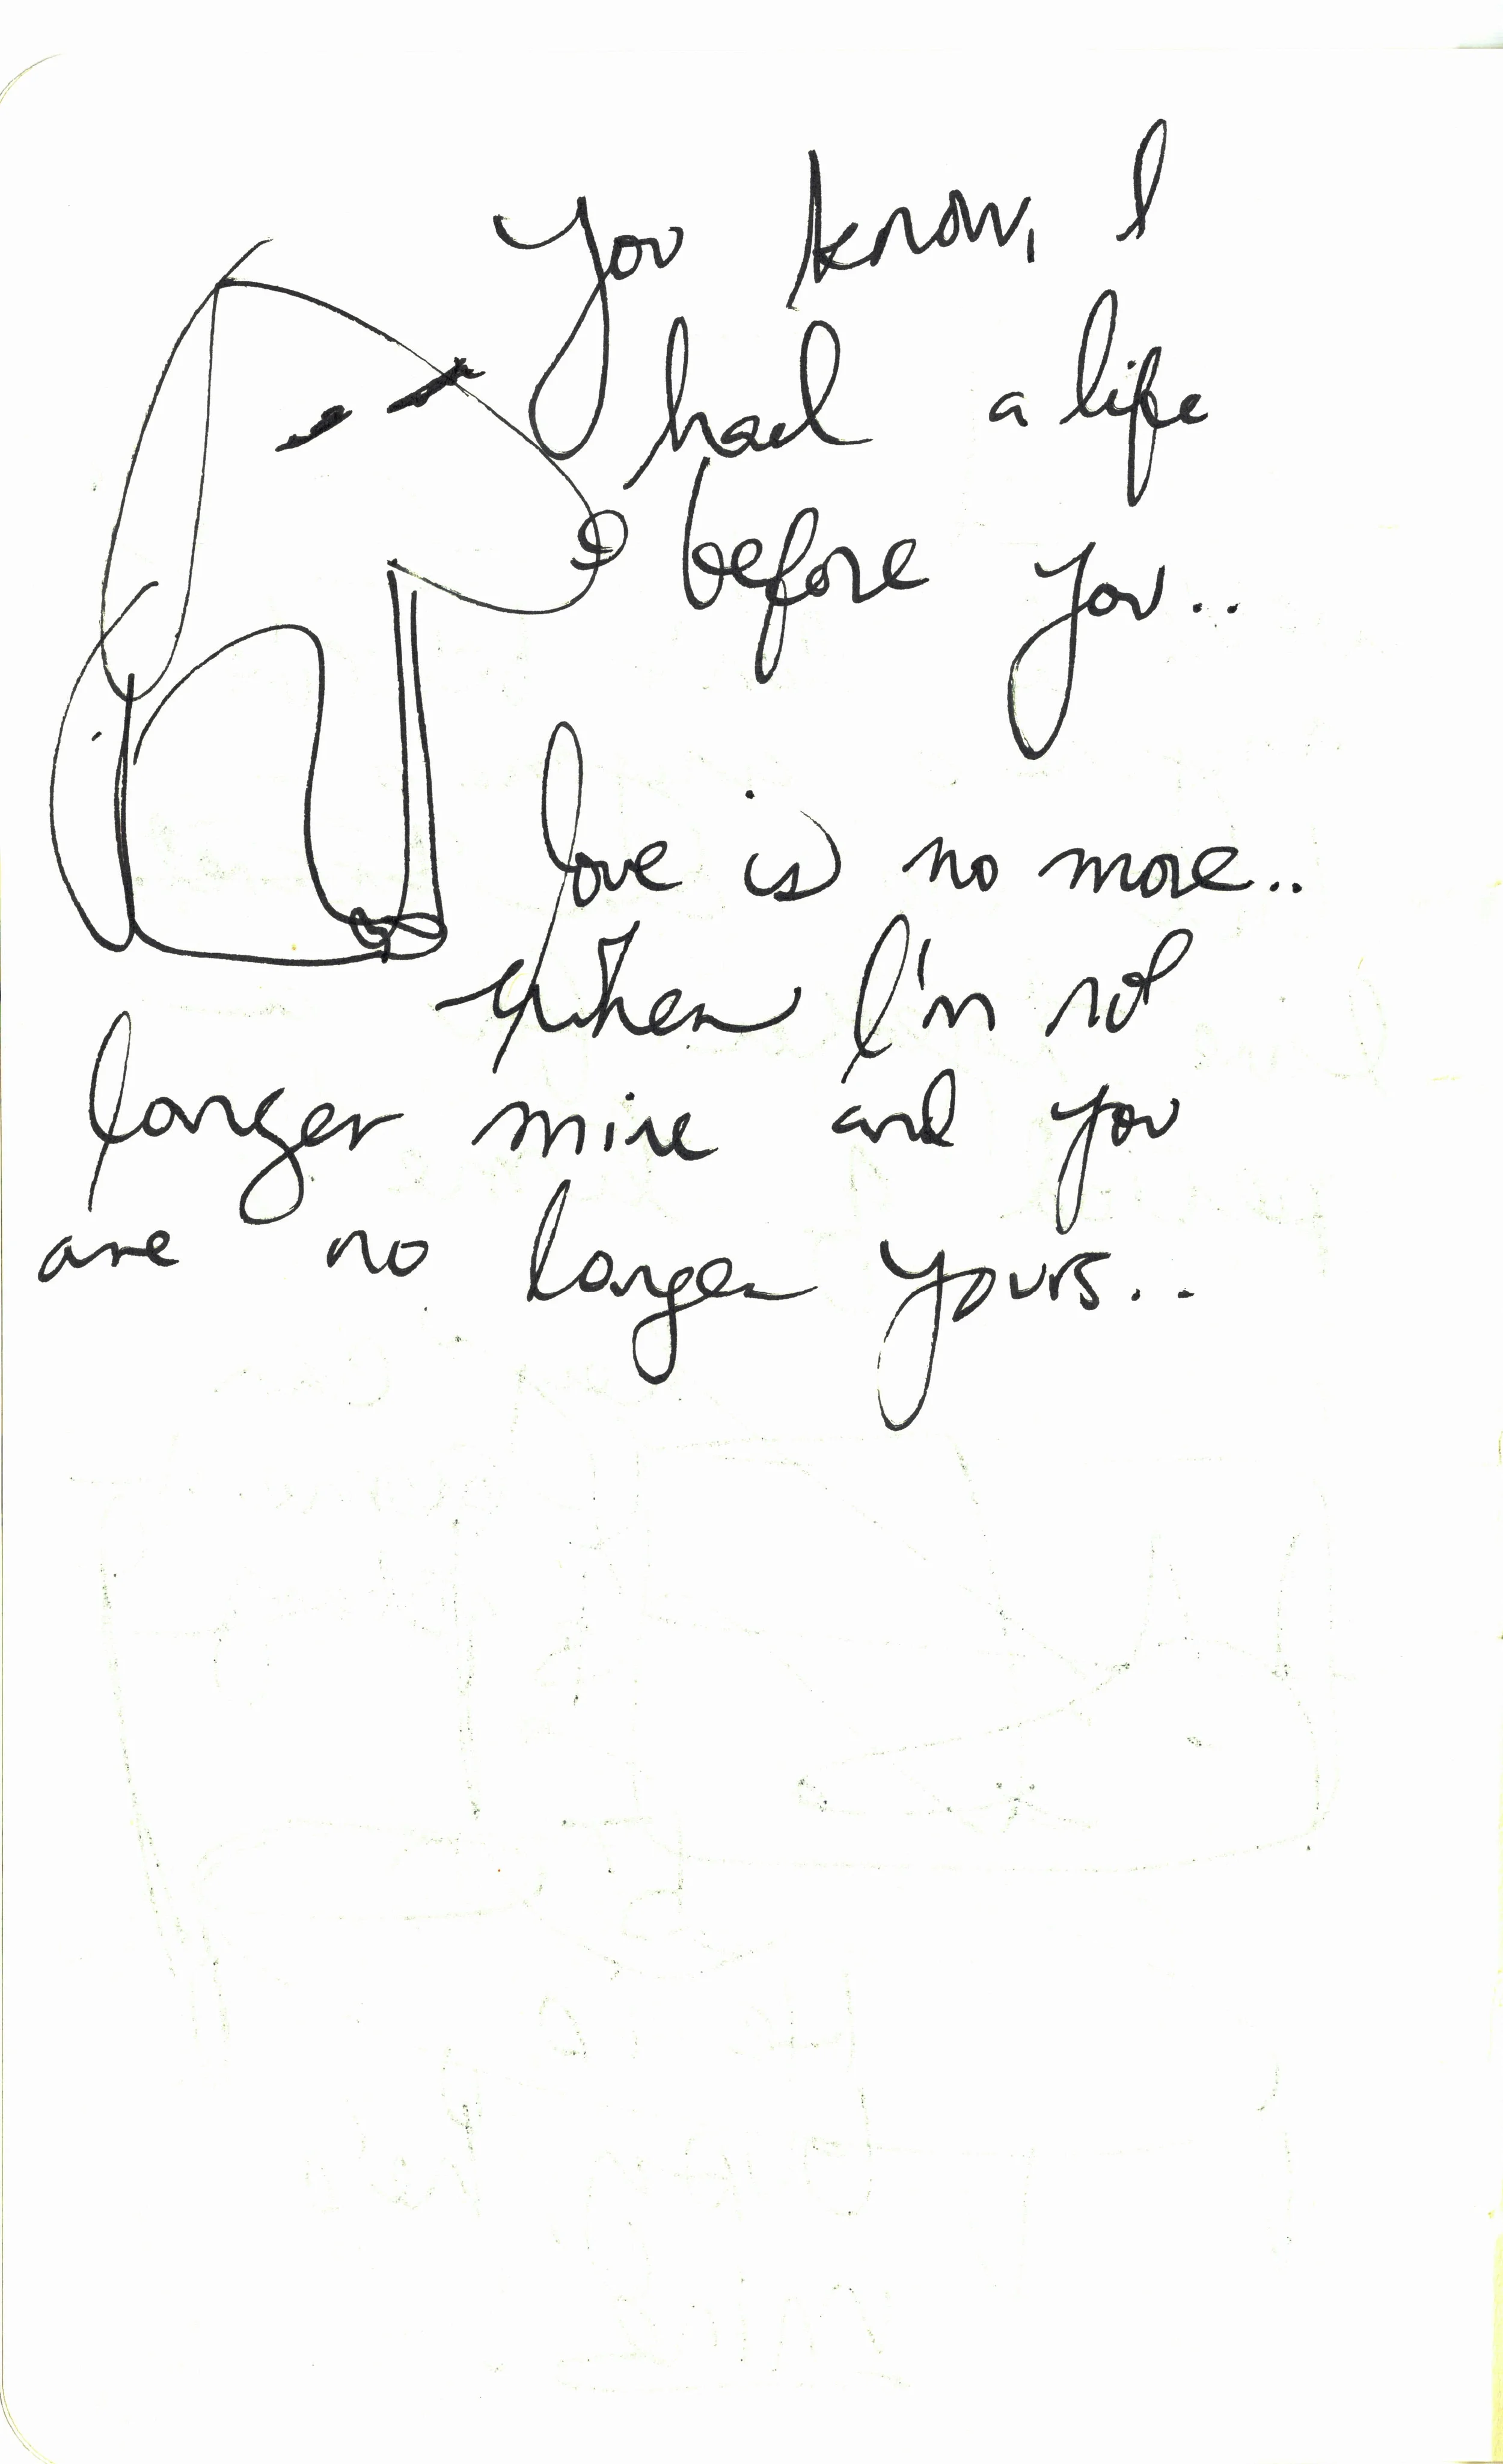 You know, I
had a life
before you..
love is no more..
when I'm not
longer mine and you
are no longer yours...